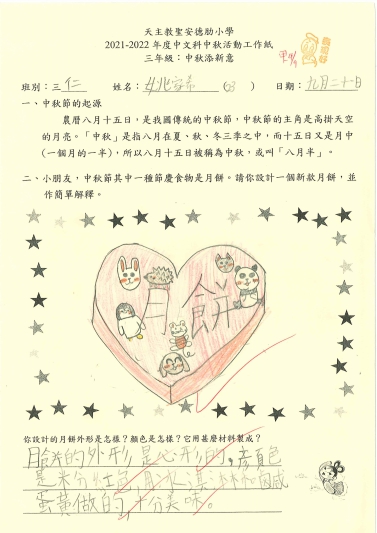 天主教聖安德肋小學
2021-2022 年度中文科中秋活動工作紙
三年級：中秋添新意
班別：三仁 姓名： (3) 日期：九月二十一日
一、中秋節的起源
農曆八月十五日，是我國傳統的中秋節，中秋節的主角是高掛天空
的月亮。「中秋」是指八月在夏、秋、冬三季之中，而十五日又是月中
(一個月的一半)，所以八月十五日被稱為中秋，或叫「八月半」。
二、小朋友，中秋節其中一種節慶食物是月餅。請你設計一個新款月餅，並
作簡單解釋。
月餅
你設計的月餅外形是怎樣？顏色是怎樣？它用甚麼材料製成？
月餅的外形是心形的，顏色
是米分紅色，用冰淇淋和鹹
蛋黃做的，十分美味。